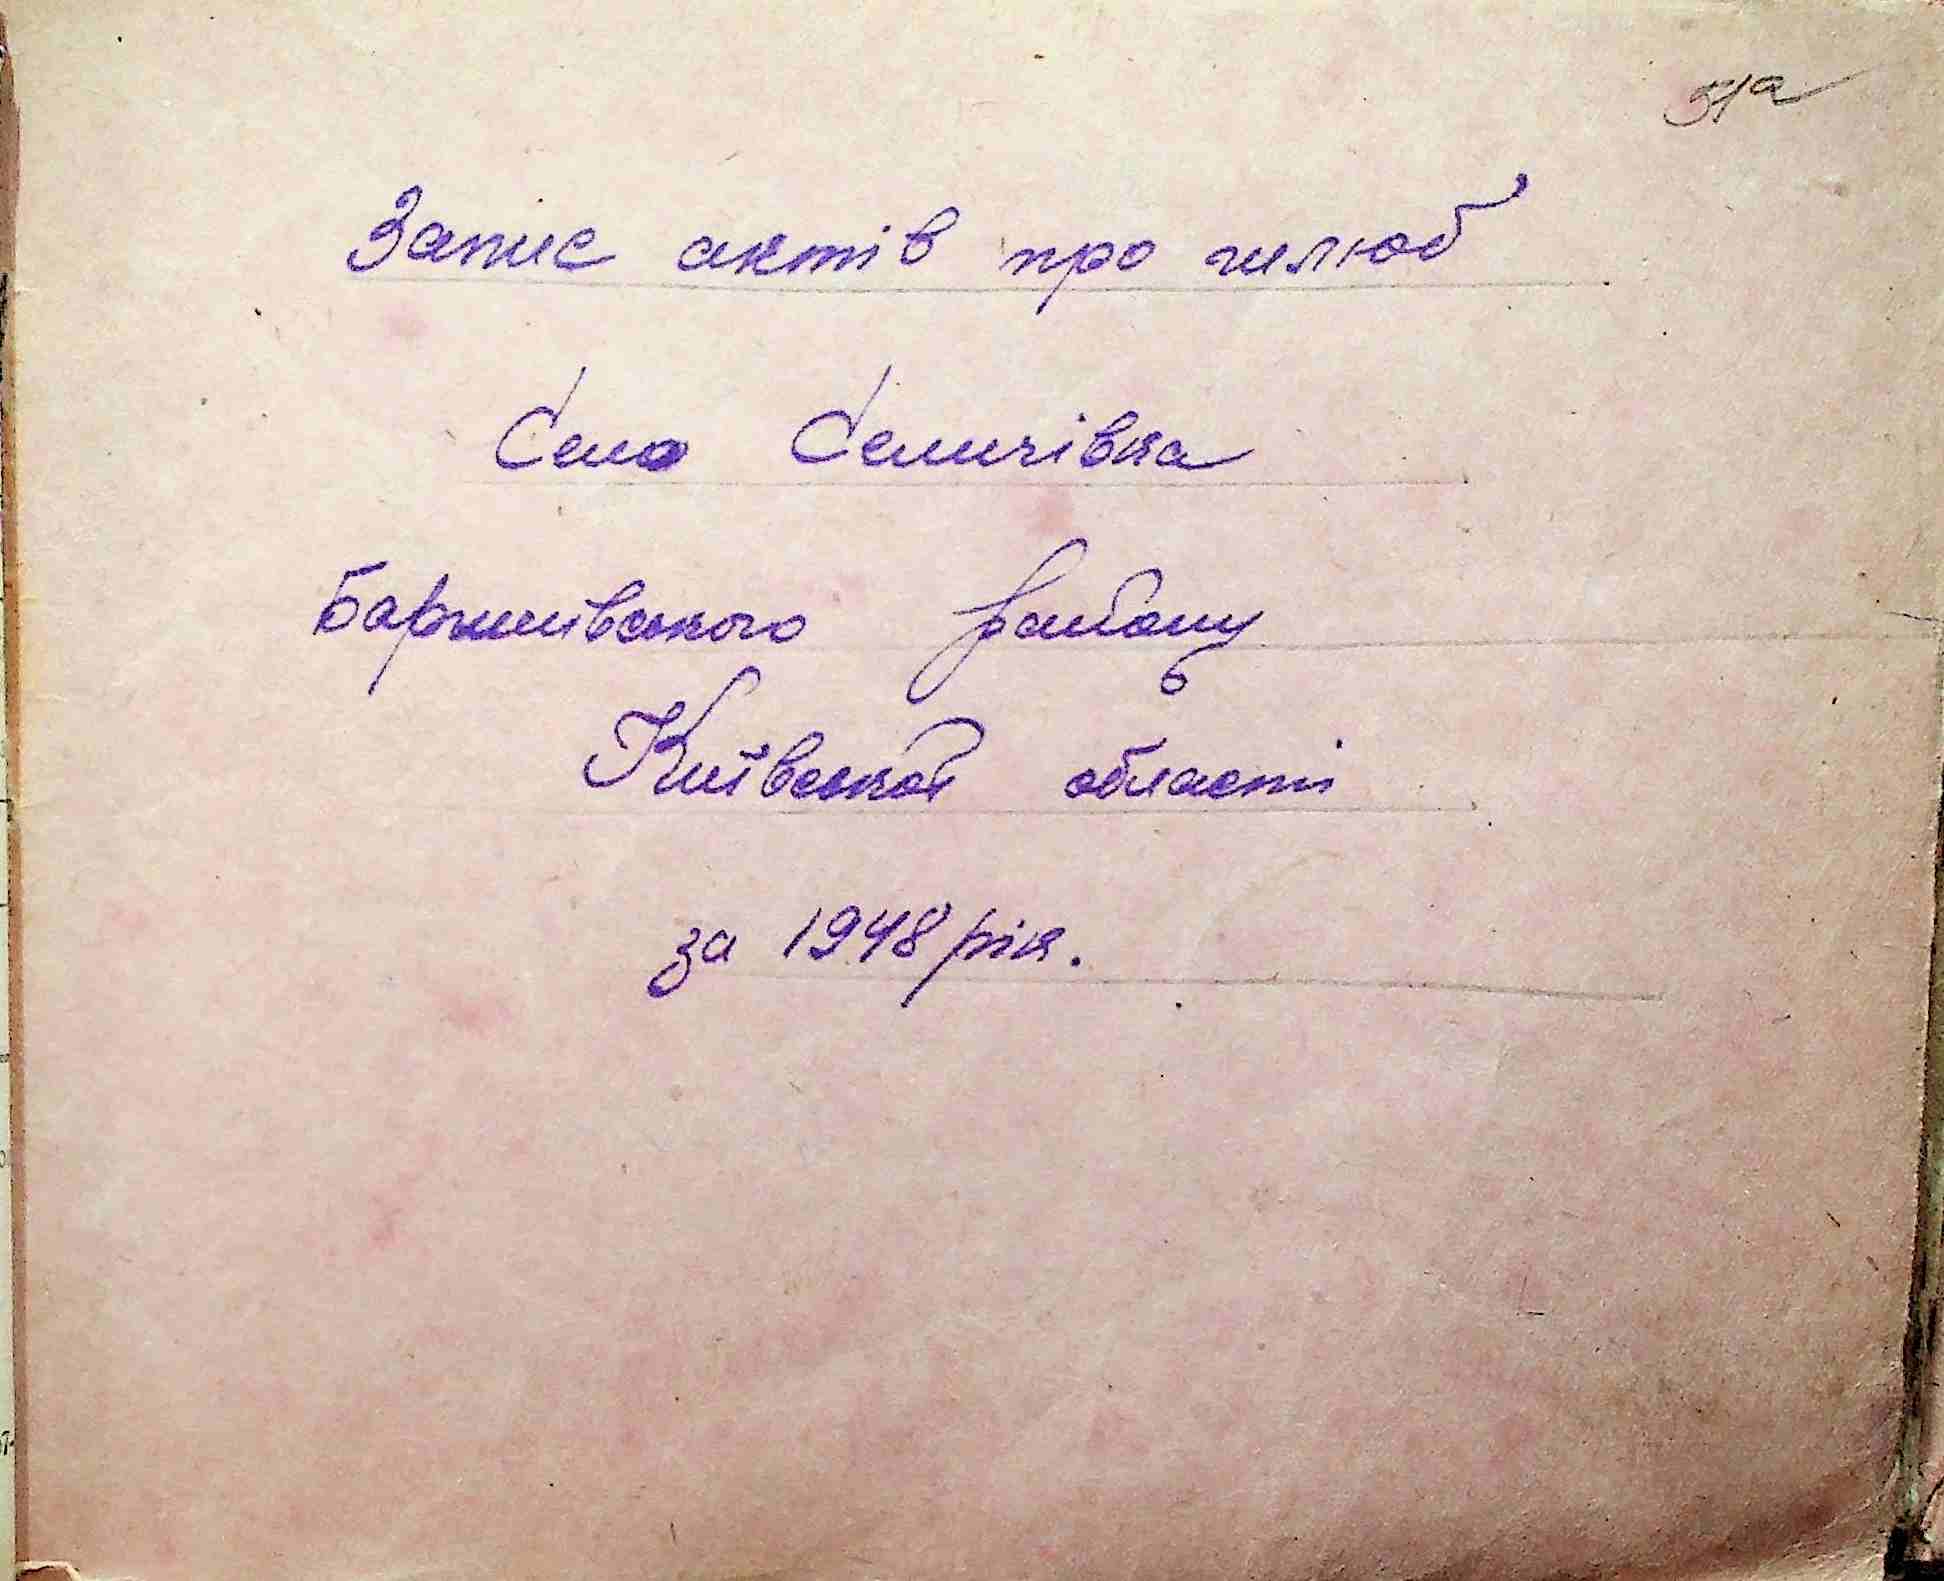 51а
Запис актів про шлюб
Село Селичівка
Баришівського району
Київської області
за 1948 рік.